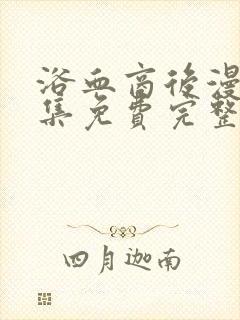 浴血商後漫
集免費完整
四月迦南